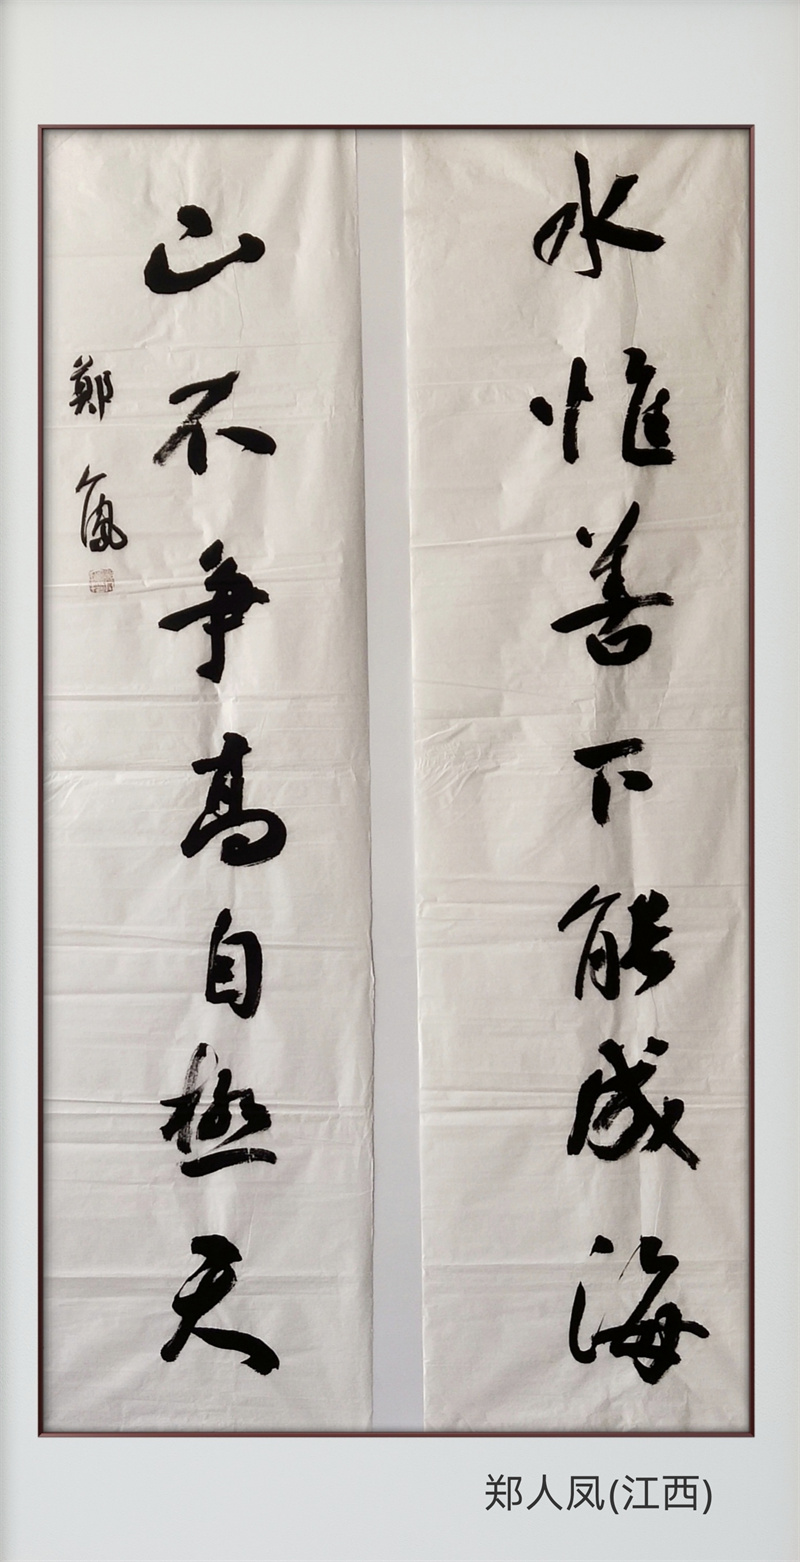 水惟善下能成海
山不争高自極天
鄭人鳳
郑人凤(江西)